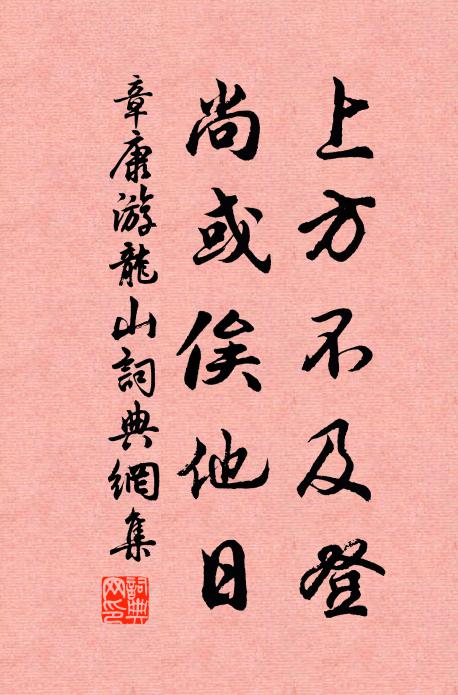 上方不及登
尚或俟他日
章康游龍山詞典網集
詞典网印